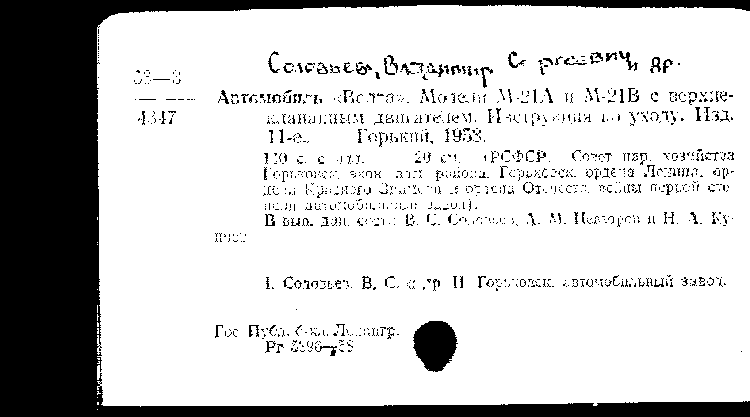 Соловьев, Владимир Сергеевич, и др.
Автомобиль «Волга». Модели М-21А и М-21В с верхне-
клапанным двигателем. Инструкция по уходу. Изд.
11-е. Горький, 1958.
с. с 20 см. (РСФСР. Совет нар. хозяйства
Горьковск. экон. адм. района. Горьковск. ордена Ленина, ор-
дена Красного Знамени и ордена Отечеств. войны первой сте-
пени автомобильный завод).
В вып. дан. сост.: В. С. Соловьев, А. М. Невзоров и Н. А. Ку-
I. Соловьев, В. С. и др. II. Горьковск. автомобильный завод.
Гос. Публ. б-ка Ленингр.
Рг
4347